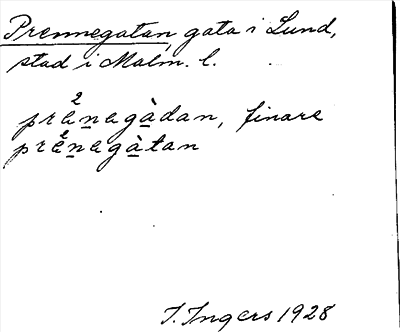 Prennegatan, gata i Lund,
stad i Malm. l.
præ²negàdan, finare
præ²negàtan
I. Ingers 1928